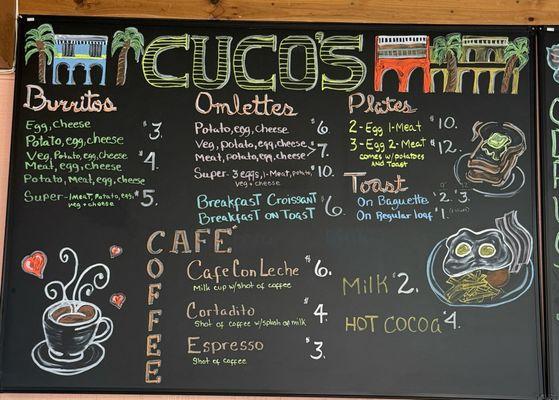 CUCO'S
Burritos
Egg, Cheese
Potato, egg, cheese $3.
Veg, Potato, egg, Cheese
Meat, egg, Cheese $4
Potato, Meat, egg, cheese
Super-1 Meat, Potato, egg, $5.
veg + cheese
Omlettes
Potato, egg, Cheese $6.
Veg, potato, egg, cheese
Meat, potato, egg, cheese >7.
Super - 3 eggs, 1-Meat, Potato, $10.
veg + cheese
Breakfast Croissant
Breakfast on Toast $6.
Plates
2-Egg 1-Meat $10.
3-Egg 2-Meat $12.
comes w/potatoes
and Toast
Toast
On Baguette $2. $3.
On Regular loaf $1.
CAFE
COFFEE
Cafe Con Leche $6.
Milk cup w/shot of coffee
Cortadito $4.
Shot of coffee w/splash of milk
Espresso $3.
Shot of coffee
Milk $2.
HOT COCOA $4.